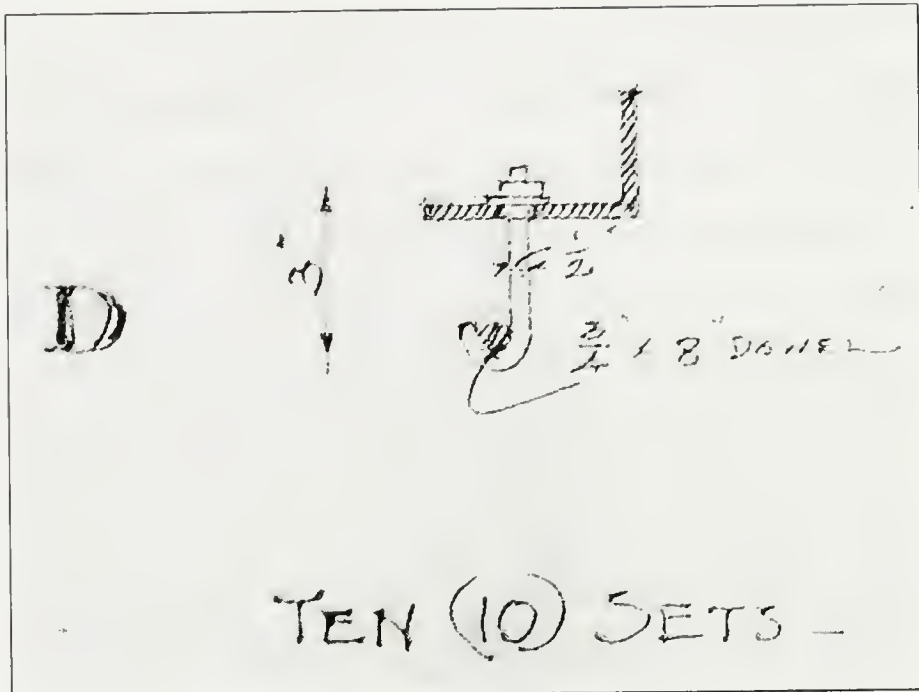 D
3"
1/2"
3/4" x 8" DOWEL
TEN (10) SETS -